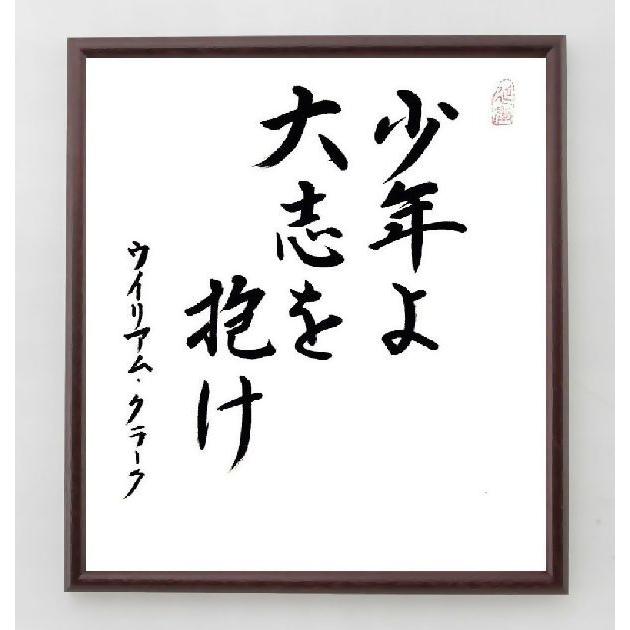 少年よ
大志を
抱け
ウイリアム・クラーク